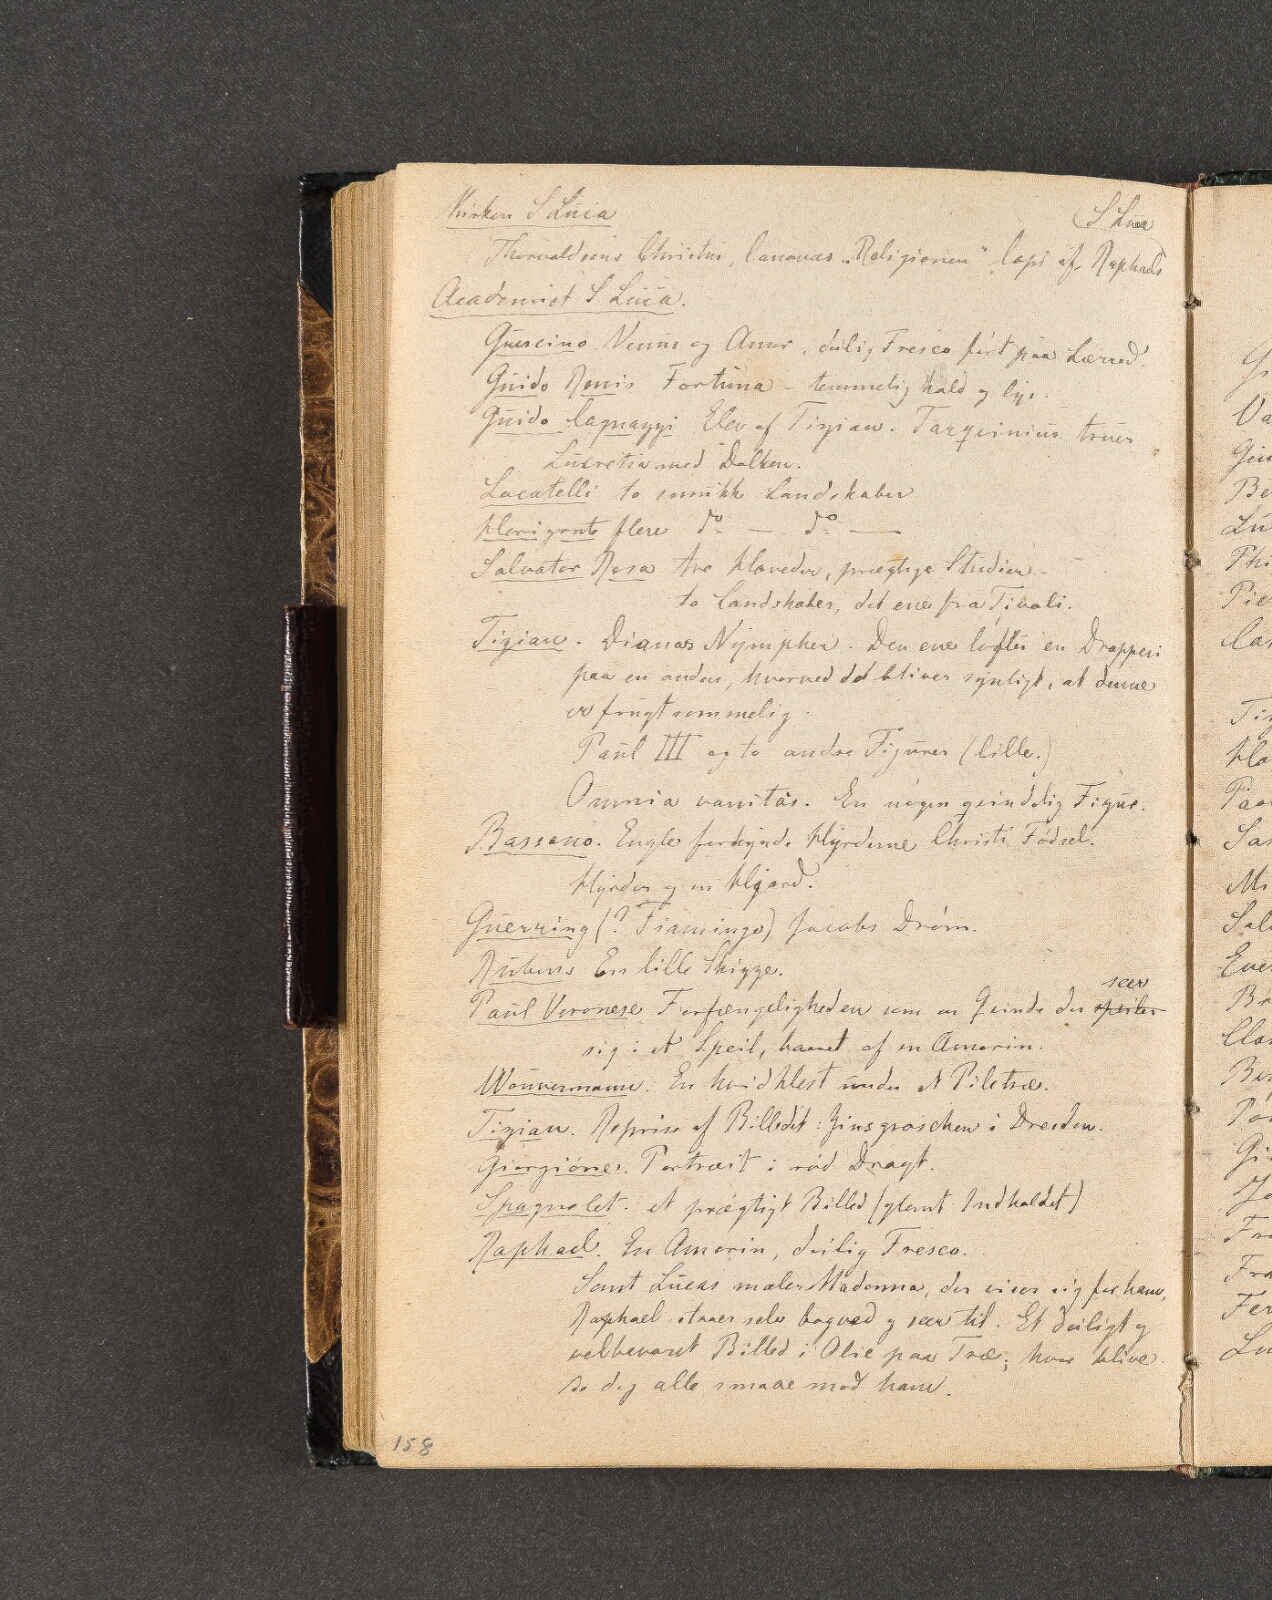 Kirken S Luca (S Luca
Thorvaldsens Christus, Canovas „Religionen" Copi af Raphaels
Academiet S Luca.
Guercino. Venus og Amor, deilig Fresco ført paa Lærred.
Guido Renis Fortuna – temmelig kold og lys.
Guido Cagnazzi Elev af Tizian. Tarqvinius truer
Lucretia med Dolken.
Locatelli to smukke Landskaber
Horizont flere do – do –
Salvator Rosa tre Hoveder, prægtige Studier –
to Landskaber, det ene fra Tivoli.
Tizian. Dianas Nympher. Den ene løfter en Drapperi
paa en anden, hvorved det bliver synligt, at denne
er frugtsommelig.
Paul III og to andre Figurer (lille.)
Omnia vanitas. En nøgen qvindelig Figur.
Bassano. Engle forkynde Hyrderne Christi Fødsel.
Hyrder og en Hjord.
Guerring (? Fiamingo) Jacobs Drøm.
Rubens En lille Skizze.
Paul Veronese Forfængeligheden som en Qvinde der speiler seer
sig i et Speil, baaret af en Amorin.
Wouvermann. En hvid Hest under et Piletræ.
Tizian. Reprise af Billedet: Zinsgroschen i Dresden.
Giorgiones. Portrait i rød Dragt.
Spagnolet. et prægtigt Billed (glemt Indholdet)
Raphael. En Amorin, deilig Fresco.
Sanct Lucas maler Madonna, der viser sig for ham,
Raphael staaer selv bagved og seer til. Et deiligt og
velbevaret Billed i Olie paa Træ; hvor blive
de dog alle smaae mod ham.
158